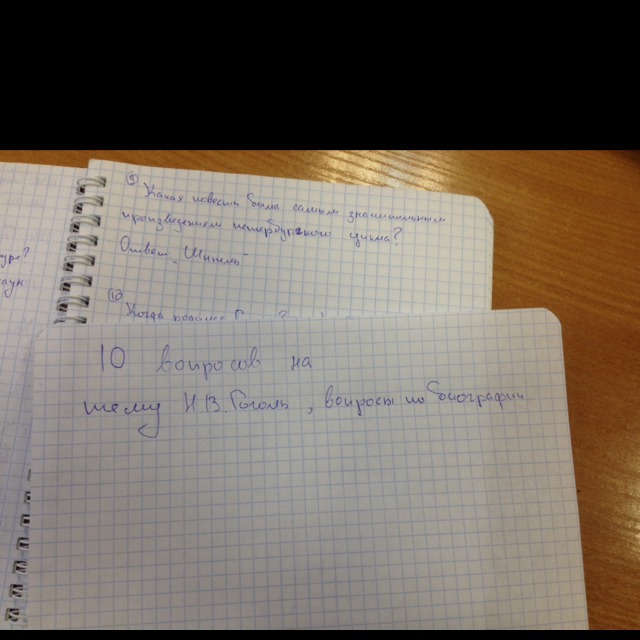 ⑨ Какая повесть была самым значительным
произведением петербургского цикла?
Ответ: „Шинель"
⑩ Когда
10 вопросов на
тему Н.В. Гоголь, вопросы по биографии